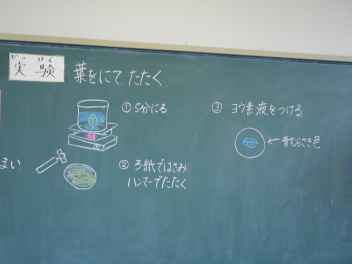 じっけん
実験
葉をにて、たたく
① 5分にる
② ろ紙ではさみ
ハンマーでたたく
③ ヨウ素液をつける
←青むらさき色
まい